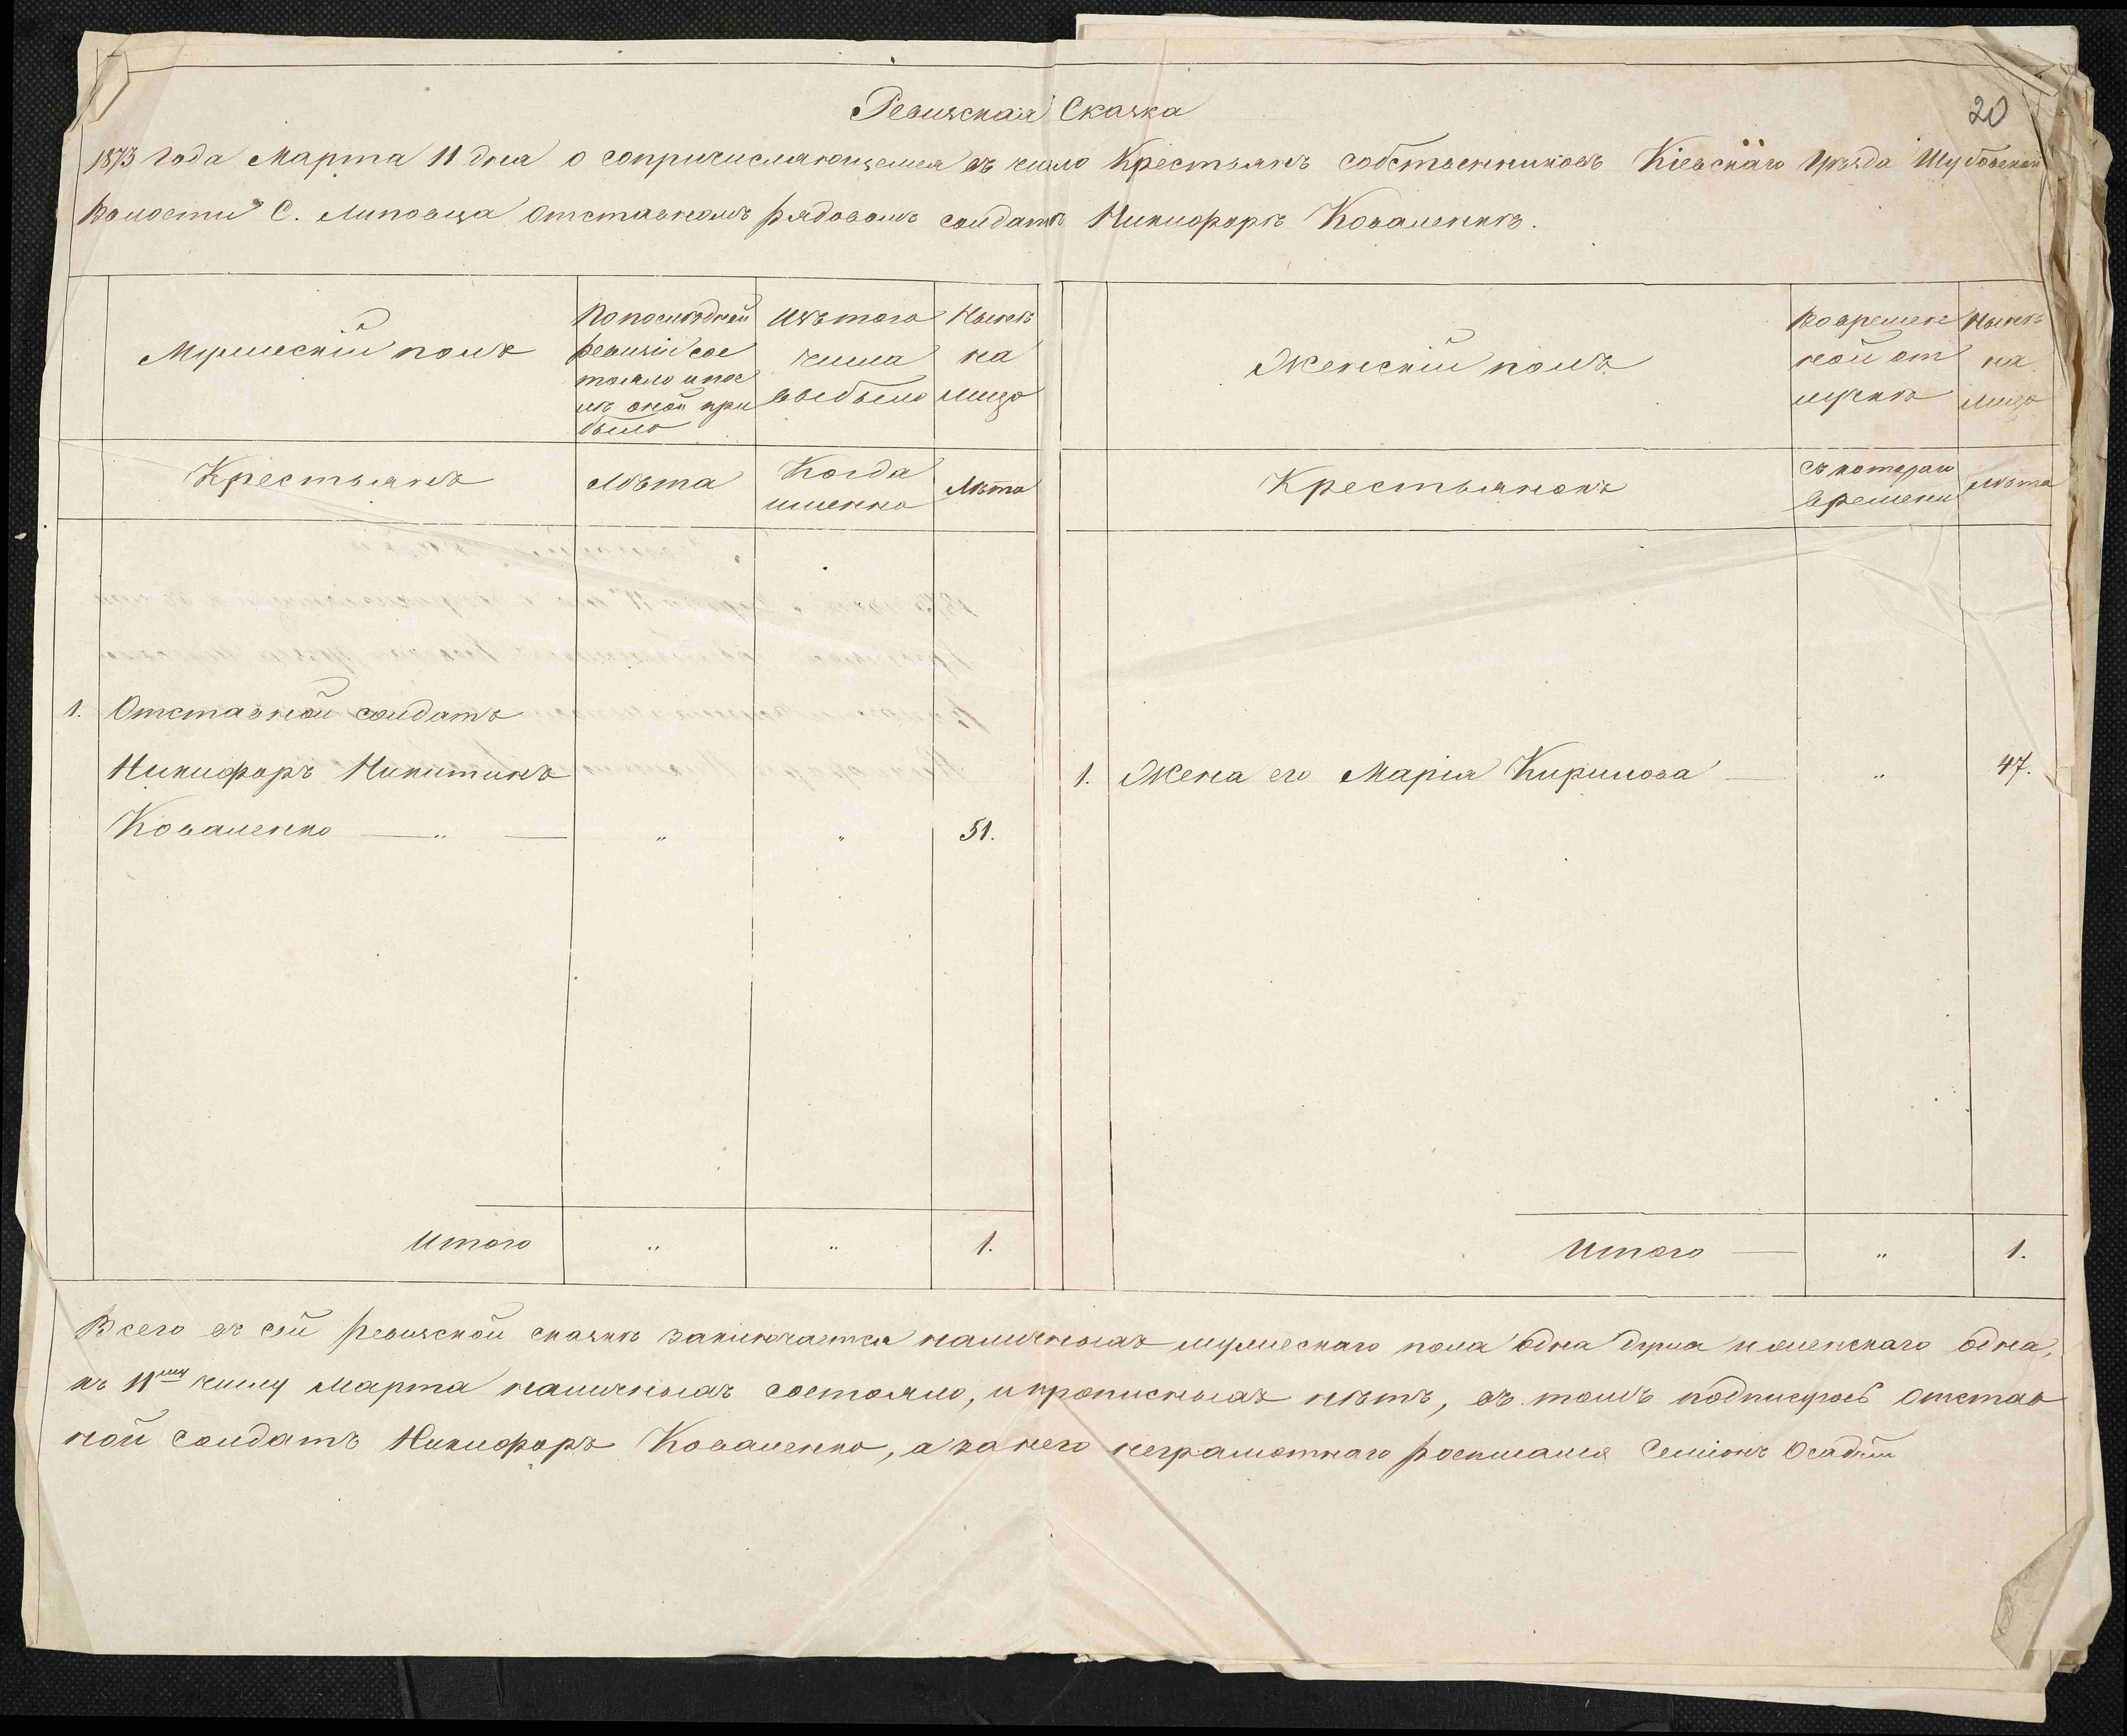 20
Ревизская Сказка
1873 года Марта 11 дня о сопричисляющемся въ число Крестьянъ собственниковъ Кіевскаго Уѣзда Шубовской
Волости С. Липовца отставномъ рядовомъ солдатѣ Никифорѣ Коваленкѣ.
Мужескій полъ
По послѣдней
ревизіи сос
тояло и пос
лѣ оной при
было
Изъ того
числа
выбыло
Нынѣ
на
лицо
Женскій полъ
Во времен
ной от
лучкѣ
Нынѣ
на
лицо
Крестьянъ
Лѣта
Когда
именно
Лѣта
Крестьянокъ
Съ котораго
времени
Лѣта
1. Отставной солдатъ
Никифоръ Никитинъ
Коваленко — „ — „ „ 51.
1. Жена его Марія Кирилова — „ 47.
Итого „ „ 1.
Итого — „ 1.
Всего въ сей ревизской сказкѣ заключается наличныхъ мужескаго пола одна душа и женскаго одна,
къ 11му числу Марта наличныхъ состояло, и прописныхъ нѣтъ, въ томъ подписуюсь отстав
ной солдатъ Никифоръ Коваленко, а за него неграмотнаго росписался Семіонъ